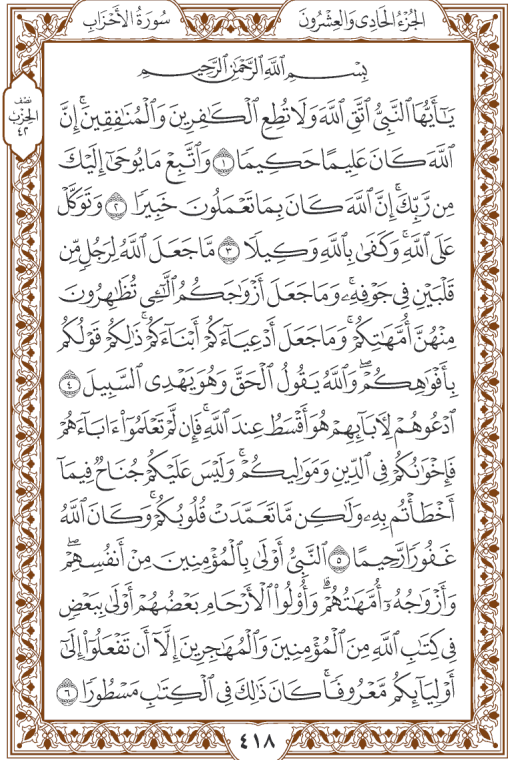 الجُزْءُ الحَادِي وَالعِشْرُونَ
سُورَةُ الأَحْزَابِ
نصف
الحزب
٤٢
بِسْمِ ٱللَّهِ ٱلرَّحْمَٰنِ ٱلرَّحِيمِ
يَٰٓأَيُّهَا ٱلنَّبِيُّ ٱتَّقِ ٱللَّهَ وَلَا تُطِعِ ٱلْكَٰفِرِينَ وَٱلْمُنَٰفِقِينَۚ إِنَّ
ٱللَّهَ كَانَ عَلِيمًا حَكِيمًا ١ وَٱتَّبِعْ مَا يُوحَىٰٓ إِلَيْكَ
مِن رَّبِّكَۚ إِنَّ ٱللَّهَ كَانَ بِمَا تَعْمَلُونَ خَبِيرًا ٢ وَتَوَكَّلْ
عَلَى ٱللَّهِۚ وَكَفَىٰ بِٱللَّهِ وَكِيلًا ٣ مَّا جَعَلَ ٱللَّهُ لِرَجُلٍ مِّن
قَلْبَيْنِ فِي جَوْفِهِۦۚ وَمَا جَعَلَ أَزْوَٰجَكُمُ ٱلَّٰٓـِٔي تُظَٰهِرُونَ
مِنْهُنَّ أُمَّهَٰتِكُمْۚ وَمَا جَعَلَ أَدْعِيَآءَكُمْ أَبْنَآءَكُمْۚ ذَٰلِكُمْ قَوْلُكُم
بِأَفْوَٰهِكُمْۖ وَٱللَّهُ يَقُولُ ٱلْحَقَّ وَهُوَ يَهْدِي ٱلسَّبِيلَ ٤
ٱدْعُوهُمْ لِأٓبَآئِهِمْ هُوَ أَقْسَطُ عِندَ ٱللَّهِۚ فَإِن لَّمْ تَعْلَمُوٓا۟ ءَابَآءَهُمْ
فَإِخْوَٰنُكُمْ فِي ٱلدِّينِ وَمَوَٰلِيكُمْۚ وَلَيْسَ عَلَيْكُمْ جُنَاحٌ فِيمَآ
أَخْطَأْتُم بِهِۦ وَلَٰكِن مَّا تَعَمَّدَتْ قُلُوبُكُمْۚ وَكَانَ ٱللَّهُ
غَفُورًا رَّحِيمًا ٥ ٱلنَّبِيُّ أَوْلَىٰ بِٱلْمُؤْمِنِينَ مِنْ أَنفُسِهِمْۖ
وَأَزْوَٰجُهُۥٓ أُمَّهَٰتُهُمْۗ وَأُو۟لُوا۟ ٱلْأَرْحَامِ بَعْضُهُمْ أَوْلَىٰ بِبَعْضٍ
فِي كِتَٰبِ ٱللَّهِ مِنَ ٱلْمُؤْمِنِينَ وَٱلْمُهَٰجِرِينَ إِلَّآ أَن تَفْعَلُوٓا۟ إِلَىٰٓ
أَوْلِيَآئِكُم مَّعْرُوفًاۚ كَانَ ذَٰلِكَ فِي ٱلْكِتَٰبِ مَسْطُورًا ٦
٤١٨